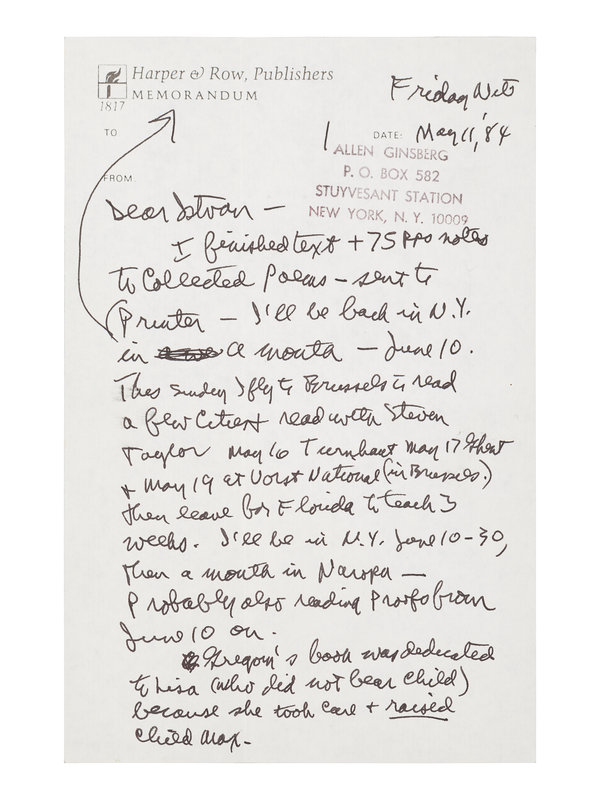 Harper & Row, Publishers
MEMORANDUM
1817
Friday Nite
TO
DATE: May 11, '84
ALLEN GINSBERG
P. O. BOX 582
STUYVESANT STATION
NEW YORK, N. Y. 10009
FROM
Dear Istvan —
I finished text + 75 pps notes
to Collected Poems — sent to
Printer — I'll be back in N.Y.
in a month — June 10.
This Sunday I fly to Brussels to read
a few Cities + read with Steven
Taylor May 16 Turnhout May 17 Ghent
+ May 19 at Vorst National (in Brussels.)
then leave for Florida to teach 3
weeks. I'll be in N.Y. June 10-30,
then a month in Naropa —
Probably also reading Proofs from
June 10 on.
Gregory's book was dedicated
to Lisa (who did not bear child)
because she took care + raised
child Max.